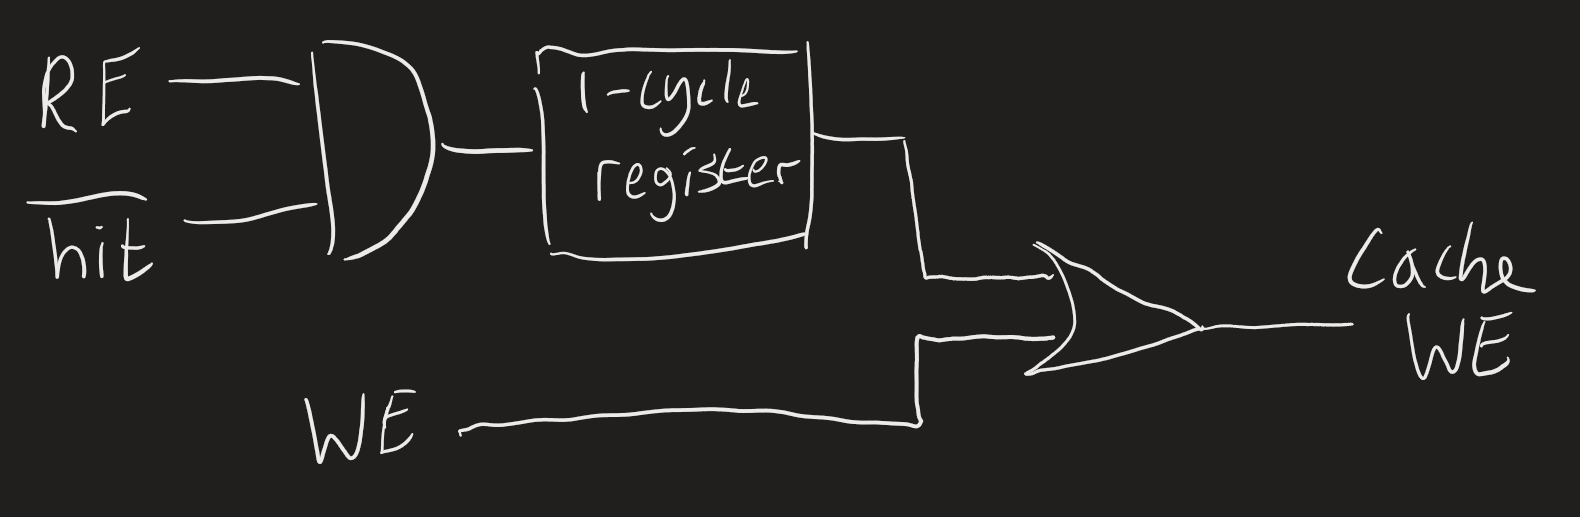 RE
hit
1-cycle
register
WE
Cache
WE